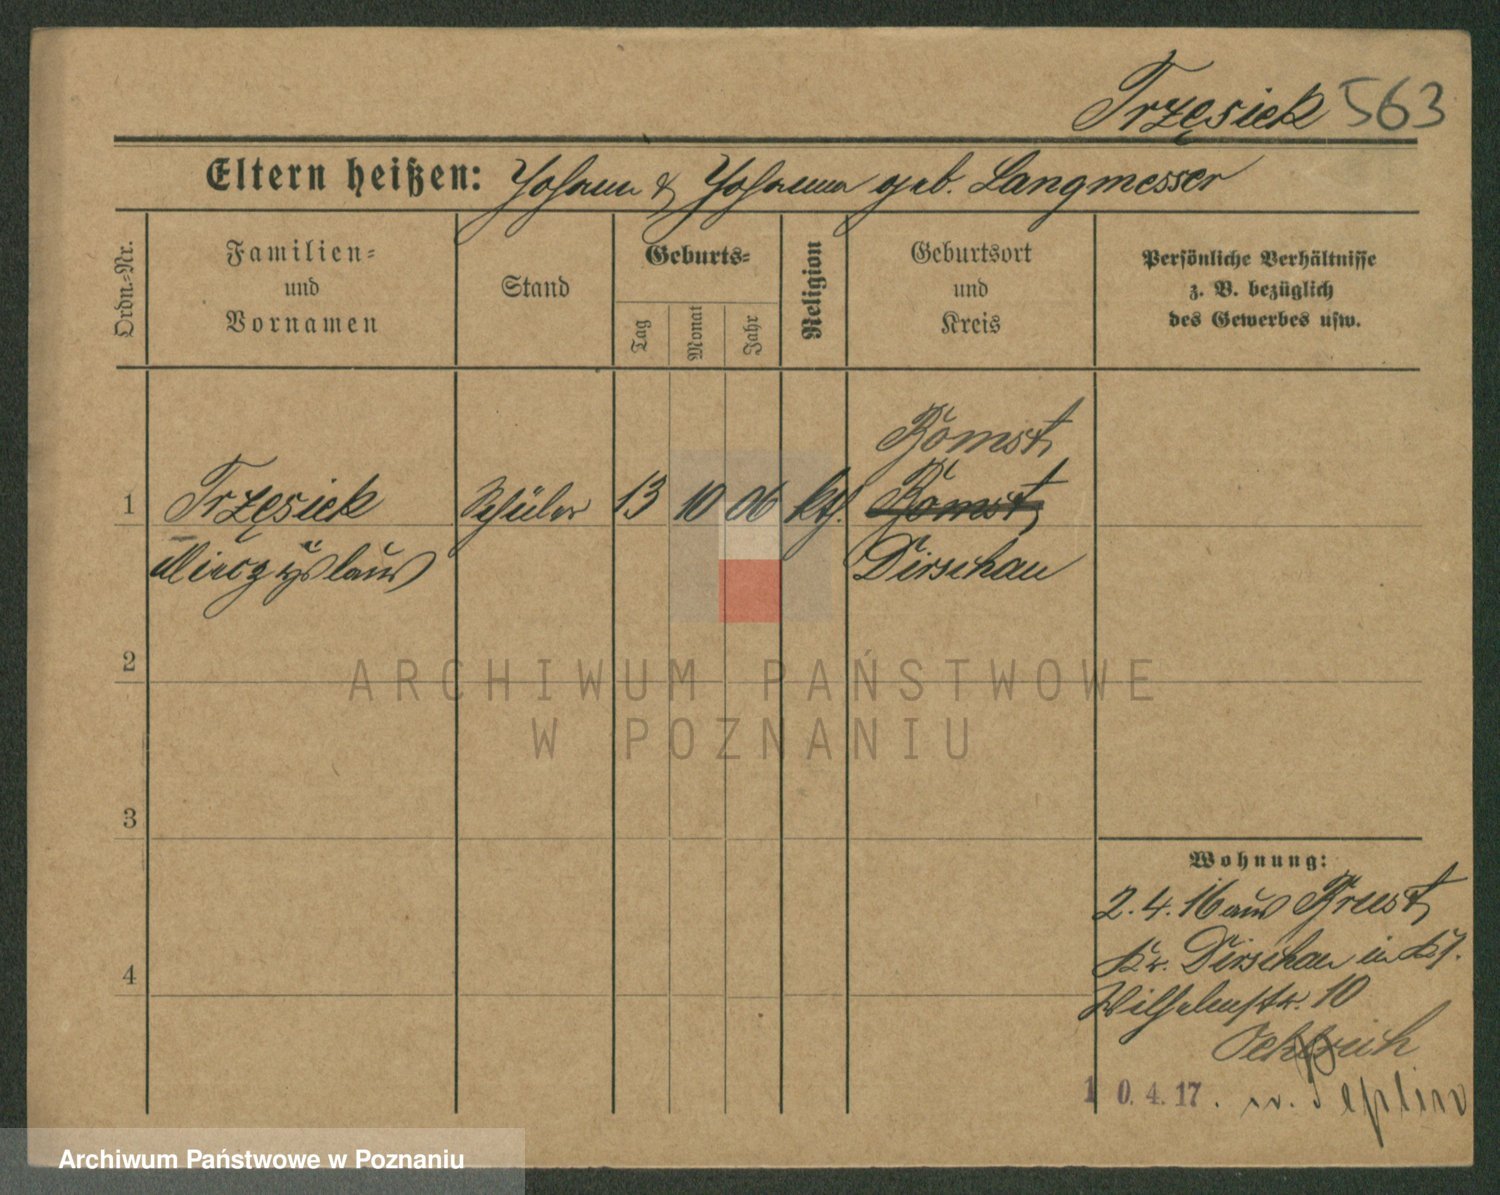 Trzęsiek 563
Eltern heißen: Johann & Johanna geb. Langmesser
Ordn.-Nr.
Familien-
und
Vornamen
Stand
Geburts-
Tag
Monat
Jahr
Religion
Geburtsort
und
Kreis
Persönliche Verhältnisse
z. B. bezüglich
des Gewerbes usw.
Bomst
1 Trzęsiek Schüler 13 10 06 kth. Bomst
Mieczyslaus Dirschau
2
3
4
Wohnung:
2.4.16 aus
Kr. Dirschau in
Wilhelmstr. 10
10.4.17. n. Peplin
ARCHIWUM PAŃSTWOWE
W POZNANIU
Archiwum Państwowe w Poznaniu